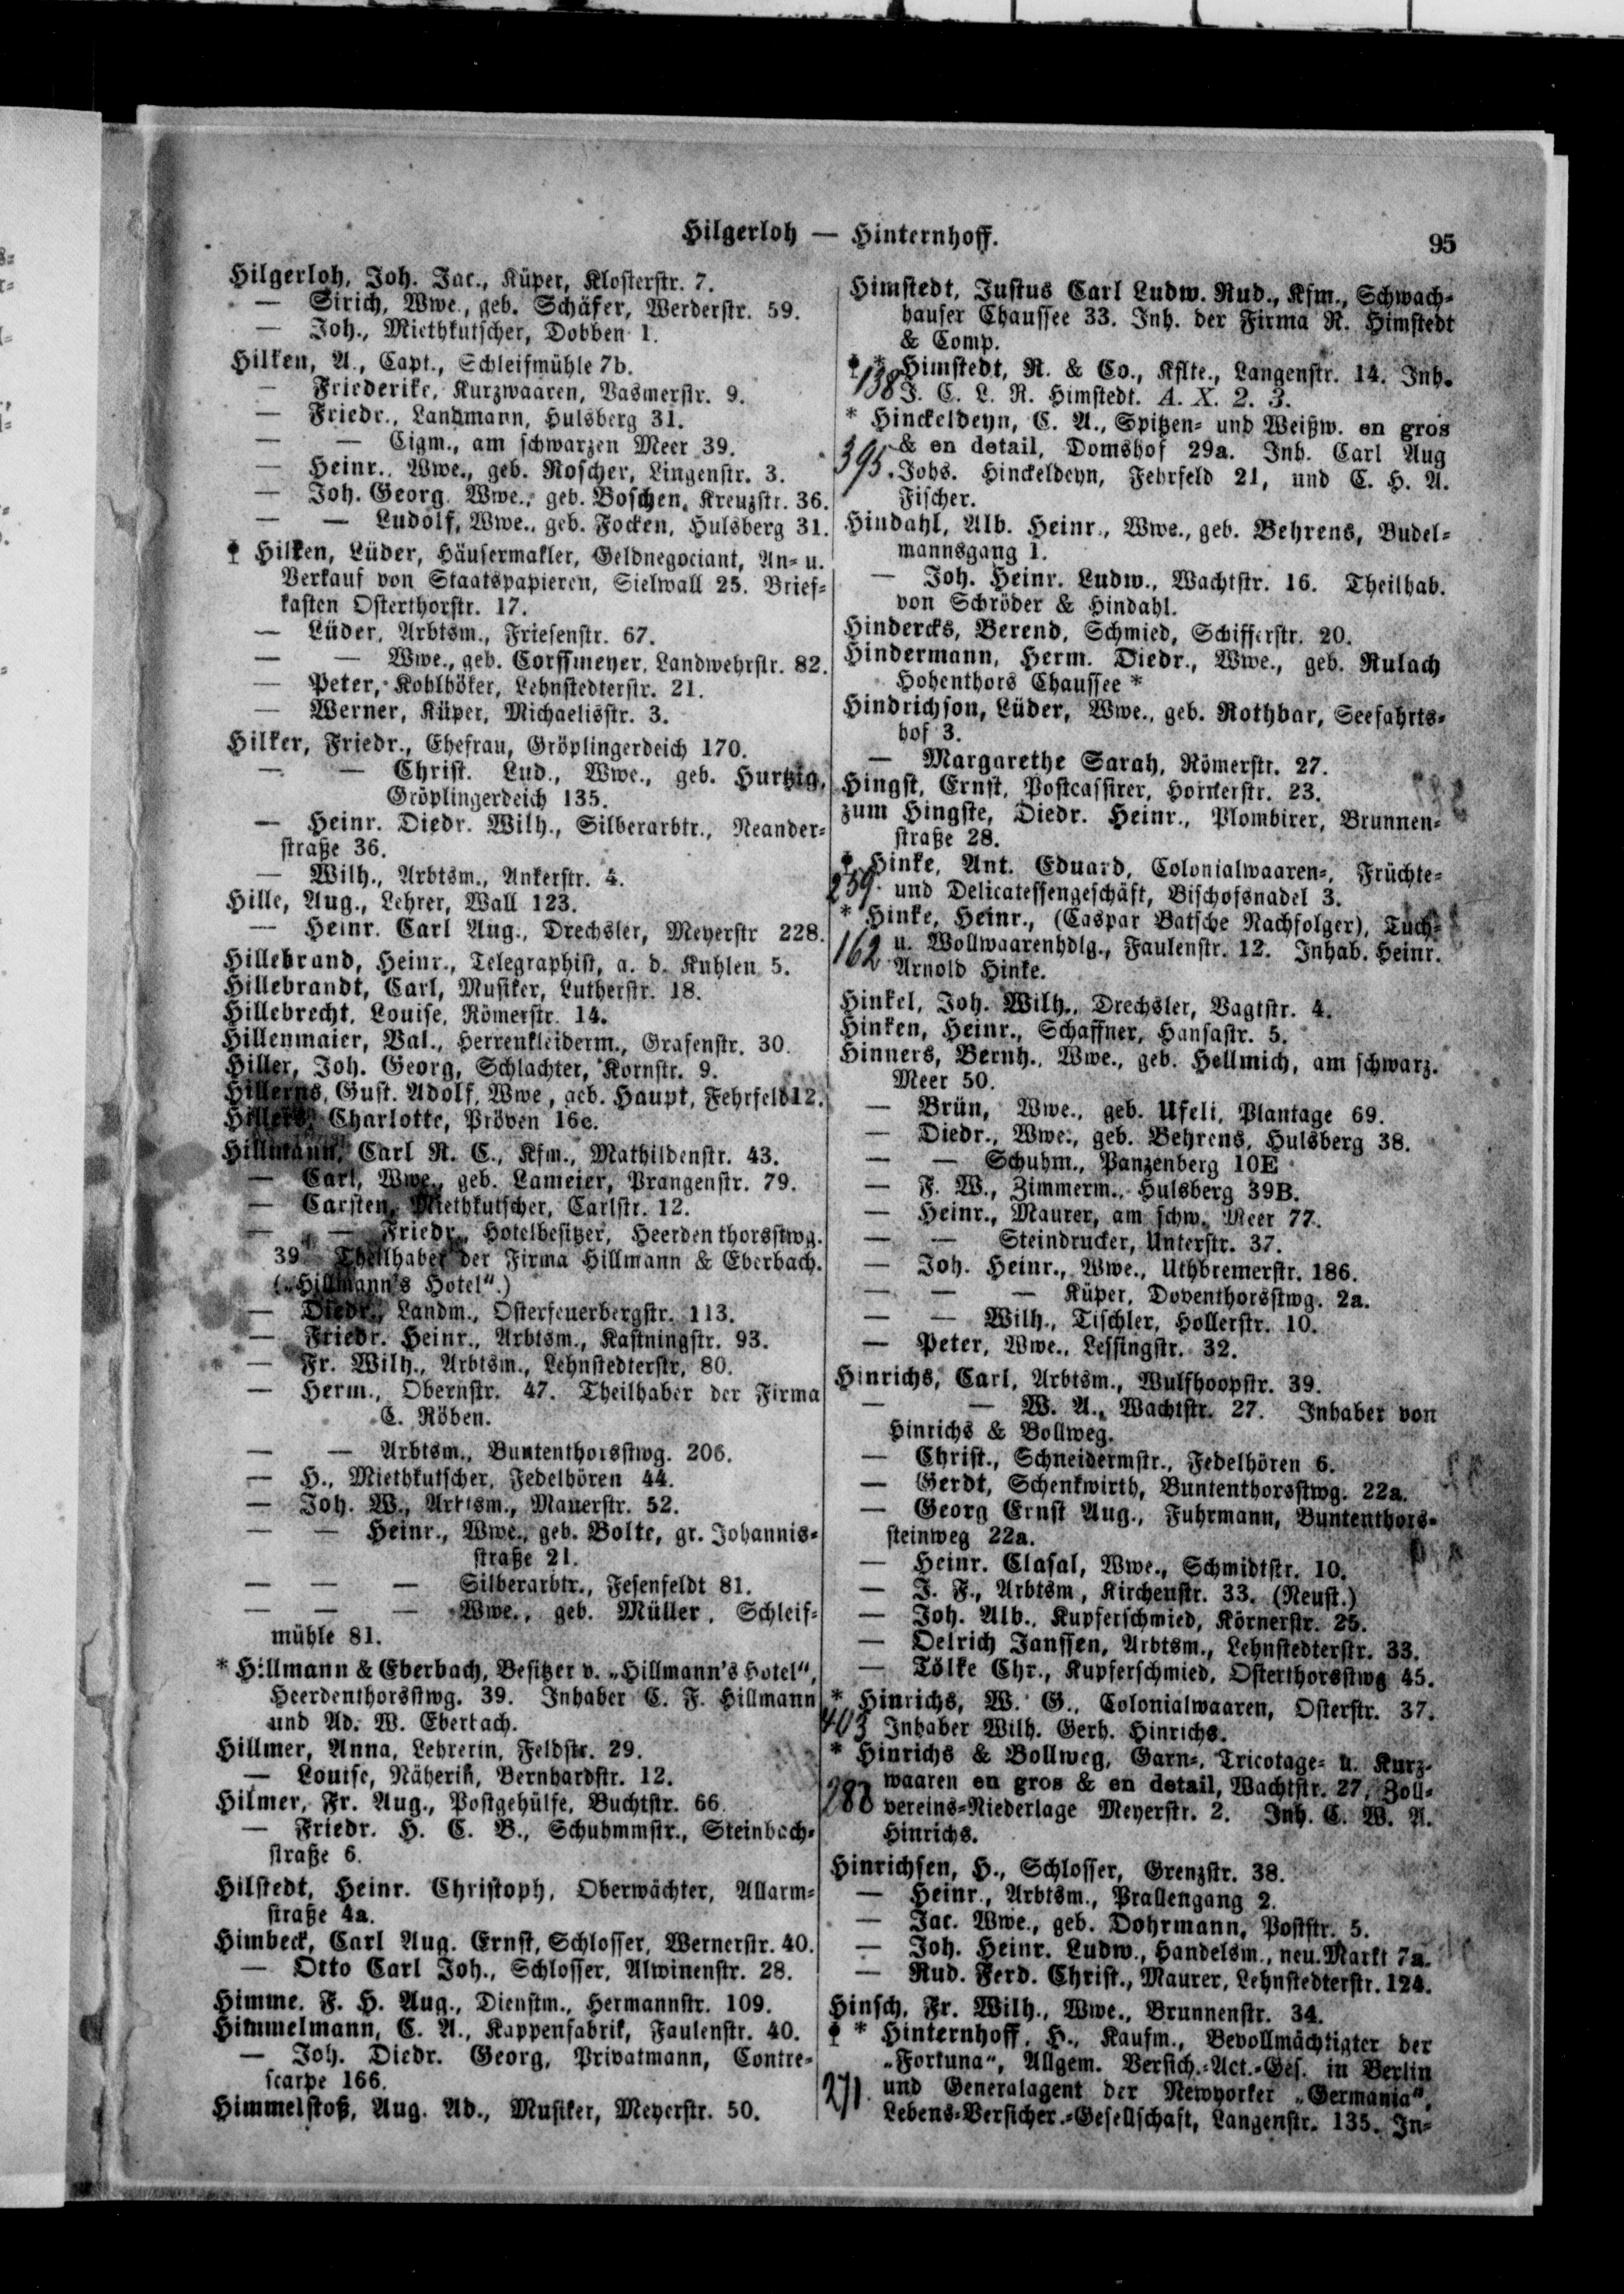 Hilgerloh — Hinternhoff.
95
Hilgerloh, Joh. Jac., Küper, Klosterstr. 7.
— Sirich, Wwe., geb. Schäfer, Werderstr. 59.
— Joh., Miethkutscher, Dobben 1.
Hilken, A., Capt., Schleifmühle 7b.
— Friederike, Kurzwaaren, Vasmerstr. 9.
— Friedr., Landmann, Hulsberg 31.
— — Cigm., am schwarzen Meer 39.
— Heinr., Wwe., geb. Roscher, Lingenstr. 3.
— Joh. Georg, Wwe., geb. Boschen, Kreuzstr. 36.
— — Ludolf, Wwe., geb. Focken, Hulsberg 31.
Hilken, Lüder, Häusermakler, Geldnegociant, An- u.
Verkauf von Staatspapieren, Sielwall 25. Brief-
kasten Osterthorstr. 17.
— Lüder, Arbtsm., Friesenstr. 67.
— — Wwe., geb. Corssmeyer, Landwehrstr. 82.
— Peter, Kohlhöker, Lehnstedterstr. 21.
— Werner, Küper, Michaelisstr. 3.
Hilker, Friedr., Ehefrau, Gröplingerdeich 170.
— — Christ. Lud., Wwe., geb. Hurtzig,
Gröplingerdeich 135.
— Heinr. Diedr. Wilh., Silberarbtr., Neander-
straße 36.
— Wilh., Arbtsm., Ankerstr. 4.
Hille, Aug., Lehrer, Wall 123.
— Heinr. Carl Aug., Drechsler, Meyerstr 228.
Hillebrand, Heinr., Telegraphist, a. d. Kuhlen 5.
Hillebrandt, Carl, Musiker, Lutherstr. 18.
Hillebrecht, Louise, Römerstr. 14.
Hillenmaier, Val., Herrenkleiderm., Grafenstr. 30.
Hiller, Joh. Georg, Schlachter, Kornstr. 9.
Hillerns, Gust. Adolf, Wwe, geb. Haupt, Fehrfeld 12.
Hillers, Charlotte, Pröven 16c.
Hillmann, Carl R. C., Kfm., Mathildenstr. 43.
— Carl, Wwe., geb. Lameier, Prangenstr. 79.
— Carsten, Miethkutscher, Carlstr. 12.
— — Friedr., Hotelbesitzer, Heerdenthorsstwg.
39. Theilhaber der Firma Hillmann & Eberbach.
(„Hillmann's Hotel“.)
— Diedr., Landm., Osterfeuerbergstr. 113.
— Friedr. Heinr., Arbtsm., Kastningstr. 93.
— Fr. Wilh., Arbtsm., Lehnstedterstr. 80.
— Herm., Obernstr. 47. Theilhaber der Firma
C. Röben.
— — Arbtsm., Buntenthorsstwg. 206.
— H., Miethkutscher, Fedelhören 44.
— Joh. W., Arbtsm., Mauerstr. 52.
— — Heinr., Wwe., geb. Bolte, gr. Johannis-
straße 21.
— — — Silberarbtr., Fesenfeldt 81.
— — — Wwe., geb. Müller, Schleif-
mühle 81.
* Hillmann & Eberbach, Besitzer v. „Hillmann's Hotel“,
Heerdenthorsstwg. 39. Inhaber C. F. Hillmann
und Ad. W. Eberbach.
Hillmer, Anna, Lehrerin, Feldstr. 29.
— Louise, Näherin, Bernhardstr. 12.
Hilmer, Fr. Aug., Postgehülfe, Buchtstr. 66.
— Friedr. H. C. B., Schuhmmstr., Steinbach-
straße 6.
Hilstedt, Heinr. Christoph, Oberwächter, Allarm-
straße 4a.
Himbeck, Carl Aug. Ernst, Schlosser, Wernerstr. 40.
— Otto Carl Joh., Schlosser, Alwinenstr. 28.
Himme, F. H. Aug., Dienstm., Hermannstr. 109.
Himmelmann, C. A., Kappenfabrik, Faulenstr. 40.
— Joh. Diedr. Georg, Privatmann, Contre-
scarpe 166.
Himmelstoß, Aug. Ad., Musiker, Meyerstr. 50.
Himstedt, Justus Carl Ludw. Rud., Kfm., Schwach-
hauser Chaussee 33. Inh. der Firma R. Himstedt
& Comp.
* Himstedt, R. & Co., Kflte., Langenstr. 14. Inh.
138 J. C. L. R. Himstedt. A. X. 2. 3.
* Hinckeldeyn, C. A., Spitzen- und Weißw. en gros
& en detail, Domshof 29a. Inh. Carl Aug
395. Johs. Hinckeldeyn, Fehrfeld 21, und C. H. A.
Fischer.
Hindahl, Alb. Heinr., Wwe., geb. Behrens, Budel-
mannsgang 1.
— Joh. Heinr. Ludw., Wachtstr. 16. Theilhab.
von Schröder & Hindahl.
Hindercks, Berend, Schmied, Schifferstr. 20.
Hindermann, Herm. Diedr., Wwe., geb. Rulach
Hohenthors Chaussee *
Hindrichson, Lüder, Wwe., geb. Rothbar, Seefahrts-
hof 3.
— Margarethe Sarah, Römerstr. 27.
Hingst, Ernst, Postcassirer, Hornerstr. 23.
zum Hingste, Diedr. Heinr., Plombirer, Brunnen-
straße 28.
Hinke, Ant. Eduard, Colonialwaaren-, Früchte-
259. und Delicatessengeschäft, Bischofsnadel 3.
* Hinke, Heinr., (Caspar Batsche Nachfolger), Tuch-
162 u. Wollwaarenhdlg., Faulenstr. 12. Inhab. Heinr.
Arnold Hinke.
Hinkel, Joh. Wilh., Drechsler, Vagtstr. 4.
Hinken, Heinr., Schaffner, Hansastr. 5.
Hinners, Bernh., Wwe., geb. Hellmich, am schwarz.
Meer 50.
— Brün, Wwe., geb. Ufeli, Plantage 69.
— Diedr., Wwe., geb. Behrens, Hulsberg 38.
— — Schuhm., Panzenberg 10E
— F. W., Zimmerm., Hulsberg 39B.
— Heinr., Maurer, am schw. Meer 77.
— — Steindrucker, Unterstr. 37.
— Joh. Heinr., Wwe., Uthbremerstr. 186.
— — — Küper, Doventhorsstwg. 2a.
— — Wilh., Tischler, Hollerstr. 10.
— Peter, Wwe., Lessingstr. 32.
Hinrichs, Carl, Arbtsm., Wulfhoopstr. 39.
— — W. A., Wachtstr. 27. Inhaber von
Hinrichs & Bollweg.
— Christ., Schneidermstr., Fedelhören 6.
— Gerdt, Schenkwirth, Buntenthorsstwg. 22a.
— Georg Ernst Aug., Fuhrmann, Buntenthors-
steinweg 22a.
— Heinr. Clasal, Wwe., Schmidtstr. 10.
— J. F., Arbtsm, Kirchenstr. 33. (Neust.)
— Joh. Alb., Kupferschmied, Körnerstr. 25.
— Oelrich Janssen, Arbtsm., Lehnstedterstr. 33.
— Tölke Chr., Kupferschmied, Osterthorsstwg 45.
* Hinrichs, W. G., Colonialwaaren, Osterstr. 37.
403 Inhaber Wilh. Gerh. Hinrichs.
* Hinrichs & Bollweg, Garn-, Tricotage- u. Kurz-
waaren en gros & en detail, Wachtstr. 27, Zoll-
288 vereins-Niederlage Meyerstr. 2. Inh. C. W. A.
Hinrichs.
Hinrichsen, H., Schlosser, Grenzstr. 38.
— Heinr., Arbtsm., Prallengang 2.
— Jac. Wwe., geb. Dohrmann, Poststr. 5.
— Joh. Heinr. Ludw., Handelsm., neu. Markt 7a.
— Rud. Ferd. Christ., Maurer, Lehnstedterstr. 124.
Hinsch, Fr. Wilh., Wwe., Brunnenstr. 34.
* Hinternhoff, H., Kaufm., Bevollmächtigter der
„Fortuna“, Allgem. Versich.-Act.-Ges. in Berlin
271. und Generalagent der Newyorker „Germania“,
Lebens-Versicher.-Gesellschaft, Langenstr. 135. In-